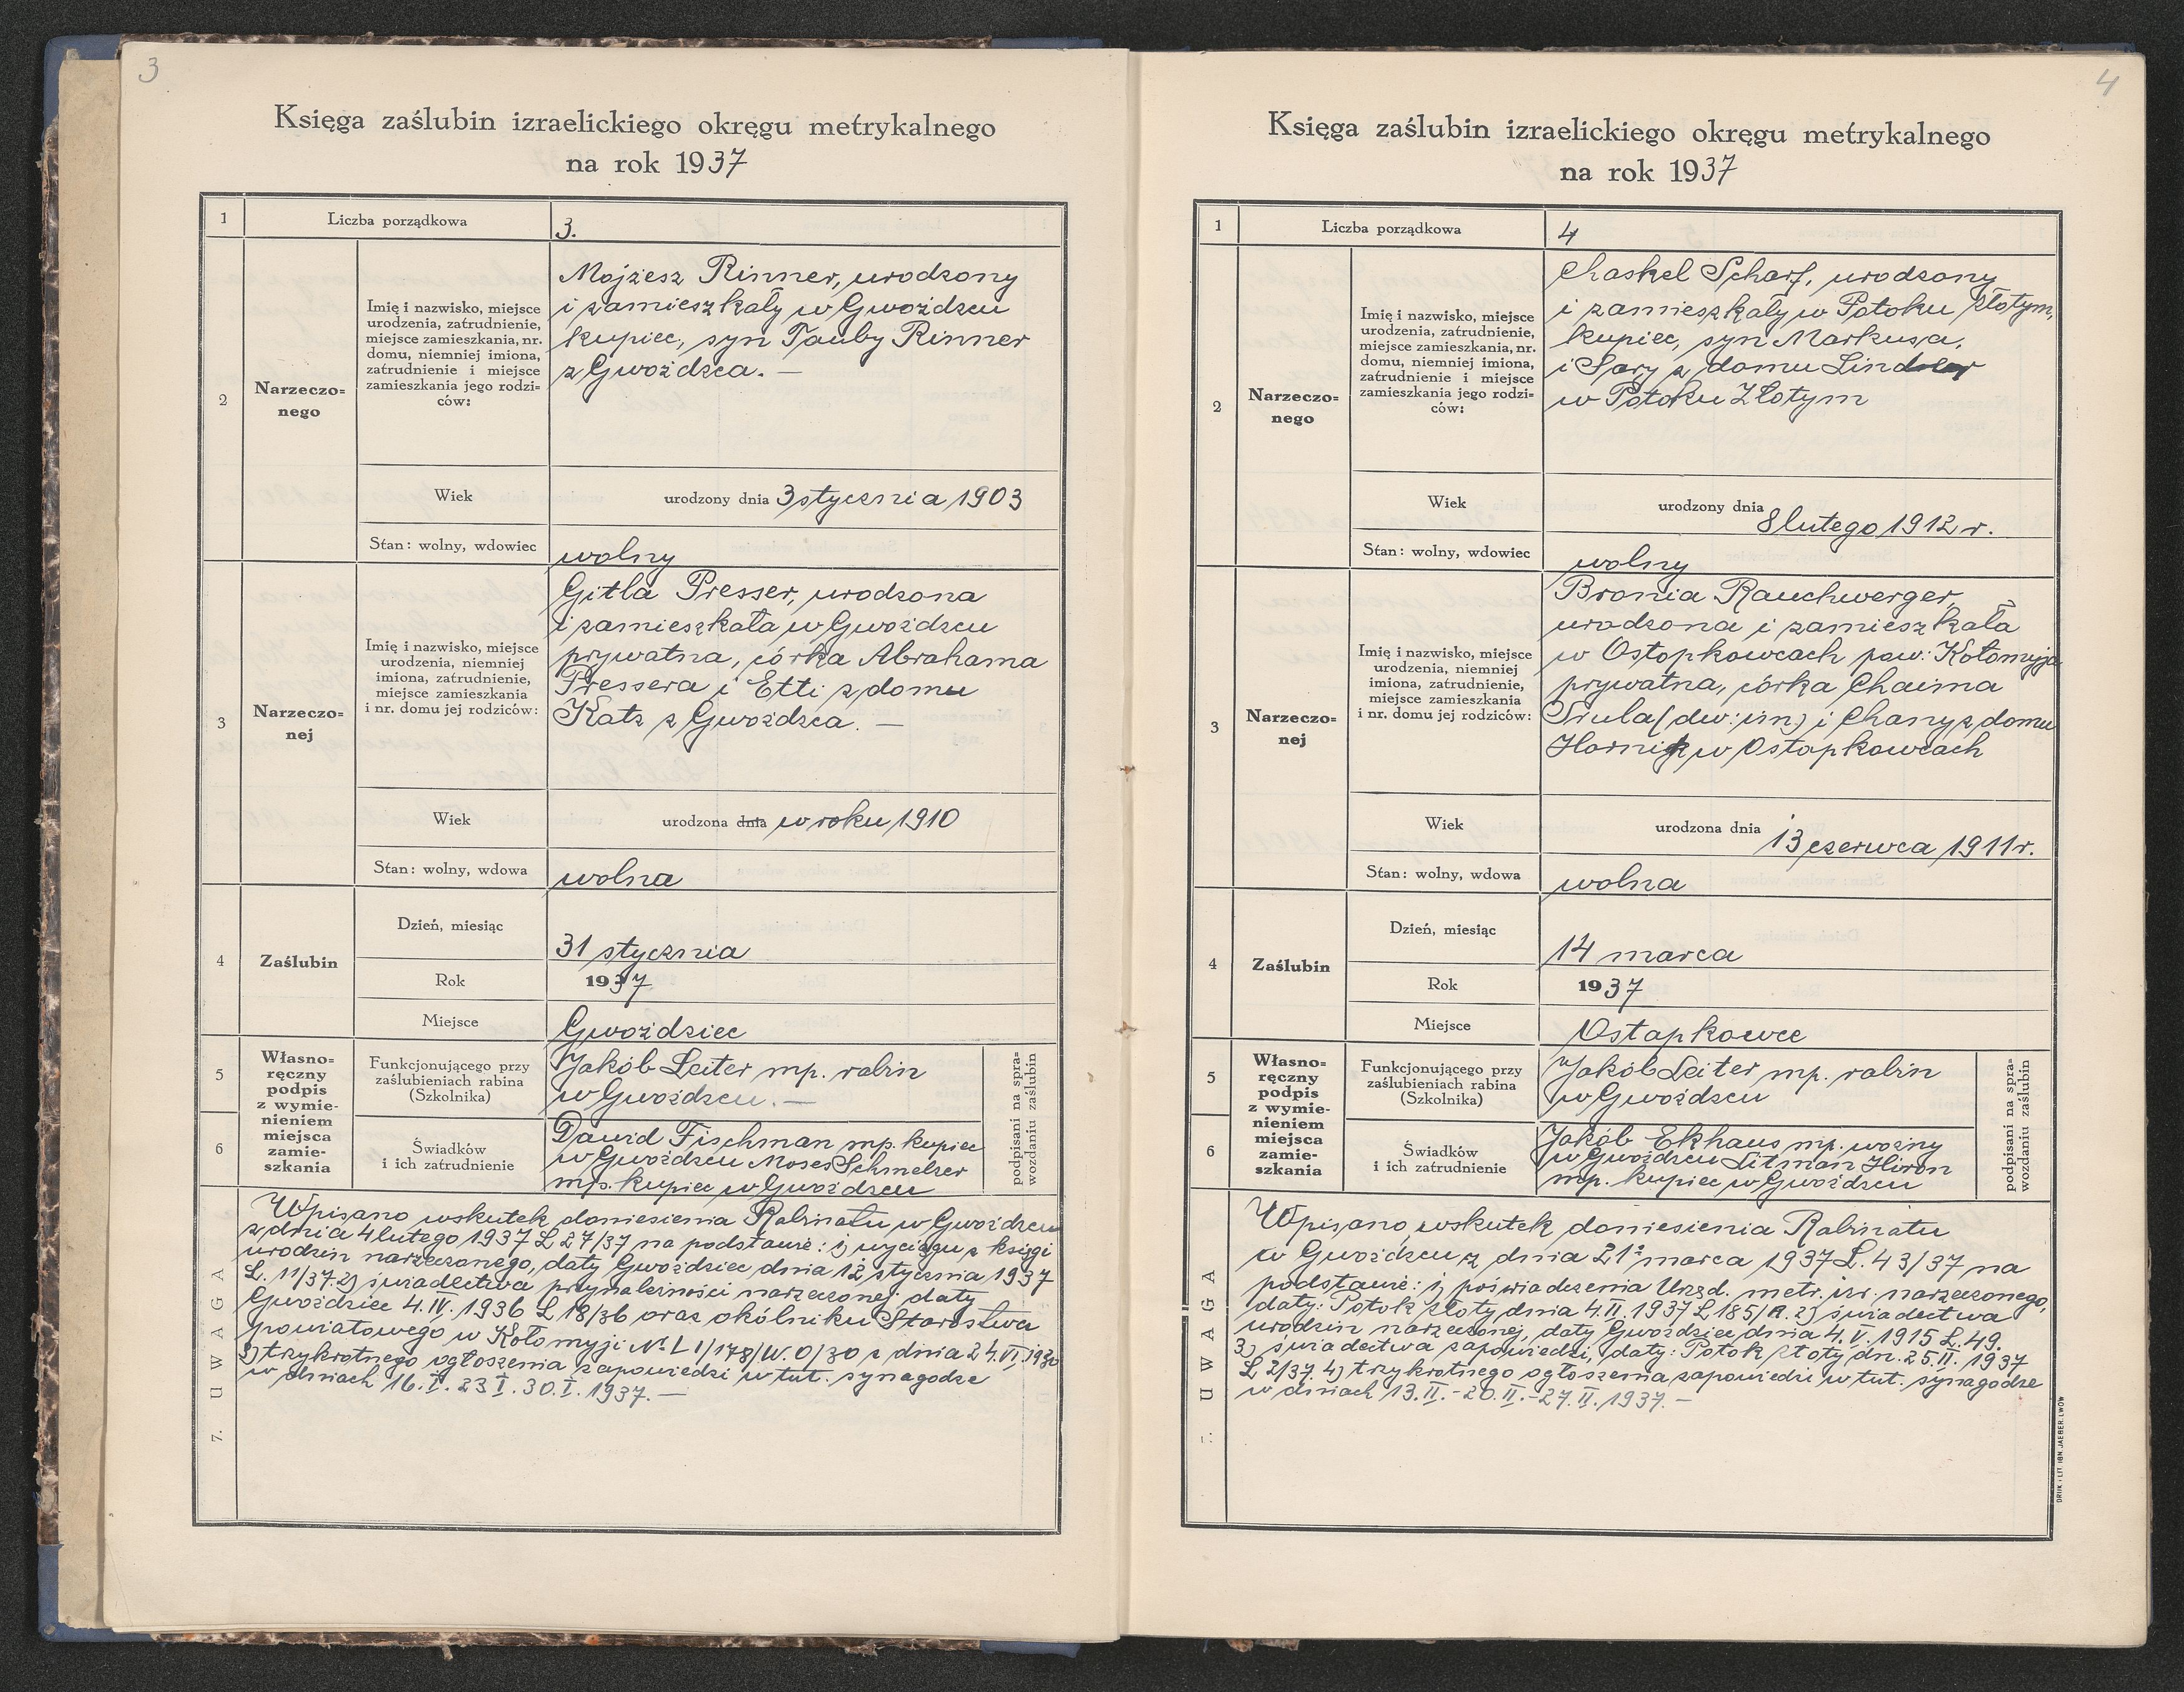 3
Księga zaślubin izraelickiego okręgu metrykalnego
na rok 1937
1
Liczba porządkowa
3.
2
Narzeczo=
nego
Imię i nazwisko, miejsce
urodzenia, zatrudnienie,
miejsce zamieszkania, nr.
domu, niemniej imiona,
zatrudnienie i miejsce
zamieszkania jego rodzi-
ców:
Mojżesz Rinner, urodzony
i zamieszkały w Gwoźdzcu
kupiec, syn Tauby Rinner
z Gwoźdzca. —
Wiek
urodzony dnia 3 stycznia 1903
Stan: wolny, wdowiec
wolny
3
Narzeczo=
nej
Imię i nazwisko, miejsce
urodzenia, niemniej
imiona, zatrudnienie,
miejsce zamieszkania
i nr. domu jej rodziców:
Gitla Presser, urodzona
i zamieszkała w Gwoźdzcu
prywatna, córka Abrahama
Pressera i Etti z domu
Katz z Gwoźdzca. —
Wiek
urodzona dnia w roku 1910
Stan: wolny, wdowa
wolna
4
Zaślubin
Dzień, miesiąc
31 stycznia
Rok
1937
Miejsce
Gwoździec
5
6
Własno=
ręczny
podpis
z wymie-
nieniem
miejsca
zamie-
szkania
Funkcjonującego przy
zaślubieniach rabina
(Szkolnika)
Jakób Leiter mp. rabin
w Gwoźdzcu. —
Świadków
i ich zatrudnienie
Dawid Fischman mp. kupiec
w Gwoźdzcu Moses Schmelzer
mp. kupiec w Gwoźdzcu
podpisani na spra-
wozdaniu zaślubin
7. UWAGA
Wpisano wskutek doniesienia Rabinatu w Gwoźdzcu
z dnia 4 lutego 1937 L 27/37 na podstawie: 1) wyciągu z księgi
urodzin narzeczonego, daty Gwoździec dnia 12 stycznia 1937
L. 11/37. 2) świadectwa przynależności narzeczonej daty
Gwoździec 4. IV. 1936 L 18/36 oraz okólniku Starostwa
powiatowego w Kołomyji N: L 1/178/W. O/30 z dnia 24. VI. 1930
3) trzykrotnego ogłoszenia zapowiedzi w tut. synagodze
w dniach 16. I. 23 I. 30. I. 1937. —
4
Księga zaślubin izraelickiego okręgu metrykalnego
na rok 1937
1
Liczba porządkowa
4
2
Narzeczo=
nego
Imię i nazwisko, miejsce
urodzenia, zatrudnienie,
miejsce zamieszkania, nr.
domu, niemniej imiona,
zatrudnienie i miejsce
zamieszkania jego rodzi-
ców:
Chaskel Scharf, urodzony
i zamieszkały w Potoku złotym,
kupiec, syn Markusa,
i Sary z domu Lindner
w Potoku Złotym
Wiek
urodzony dnia
8 lutego 1912 r.
Stan: wolny, wdowiec
wolny
3
Narzeczo=
nej
Imię i nazwisko, miejsce
urodzenia, niemniej
imiona, zatrudnienie,
miejsce zamieszkania
i nr. domu jej rodziców:
Bronia Rauchwerger,
urodzona i zamieszkała
w Ostapkowcach pow: Kołomyja
prywatna, córka Chaima
Srula (dw: im) i Chany z domu
Hornik w Ostapkowcach
Wiek
urodzona dnia
13 czerwca 1911 r.
Stan: wolny, wdowa
wolna
4
Zaślubin
Dzień, miesiąc
14 marca
Rok
1937
Miejsce
Ostapkowce
5
6
Własno=
ręczny
podpis
z wymie-
nieniem
miejsca
zamie-
szkania
Funkcjonującego przy
zaślubieniach rabina
(Szkolnika)
Jakób Leiter mp. rabin
w Gwoźdzcu
Świadków
i ich zatrudnienie
Jakób Ekhaus mp. woźny
w Gwoźdzcu Litman Hiron
mp. kupiec w Gwoźdzcu
podpisani na spra-
wozdaniu zaślubin
7. UWAGA
Wpisano wskutek doniesienia Rabinatu
w Gwoźdzcu z dnia 21 marca 1937 L. 43/37 na
podstawie: 1) poświadczenia Urzęd. metr. izr. narzeczonego,
daty: Potok złoty dnia 4. II. 1937 L 185/R. 2) świadectwa
urodzin narzeczonej, daty Gwoździec dnia 4. V. 1915 L. 49.
3) świadectwa zapowiedzi, daty: Potok złoty dn. 25. II. 1937
L 2/37. 4) trzykrotnego ogłoszenia zapowiedzi w tut. synagodze
w dniach 13. II. - 20. II. - 27. II. 1937. —
DRUK i LIT. IGN. JAEGER, LWÓW